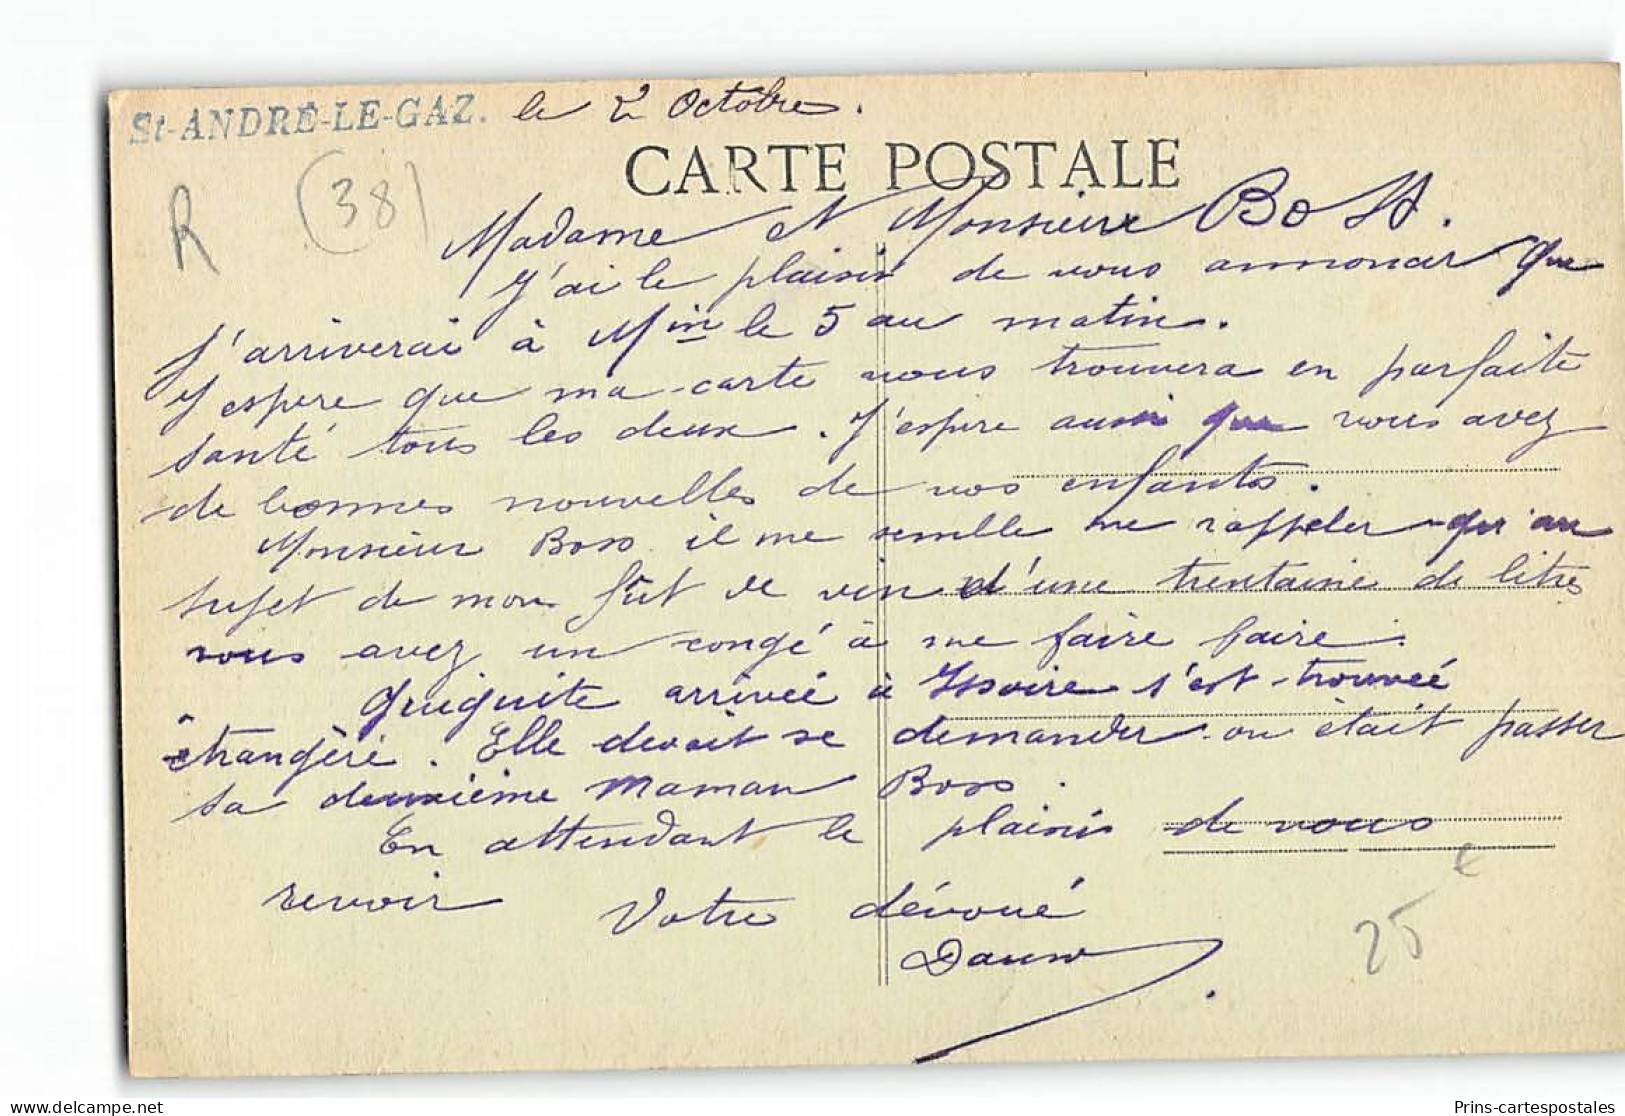 St-ANDRÉ-LE-GAZ. le 2 Octobre.
CARTE POSTALE
R (38)
Madame et Monsieur Boss.
J'ai le plaisir de vous annoncer que
j'arriverai à Min le 5 au matin.
J'espère que ma carte vous trouvera en parfaite
santé tous les deux. J'espère aussi que vous avez
de bonnes nouvelles de vos enfants.
Monsieur Boss il me semble me rappeler qu'au
sujet de mon fût de vin d'une trentaine de litres
vous avez un congé à me faire faire.
arrivée à Issoire s'est trouvée
étrangère. Elle devait se demander ou était passer
sa deuxième Maman Boss.
En attendant le plaisir de vous
revoir Votre dévoué
25 €
Prins-cartespostales